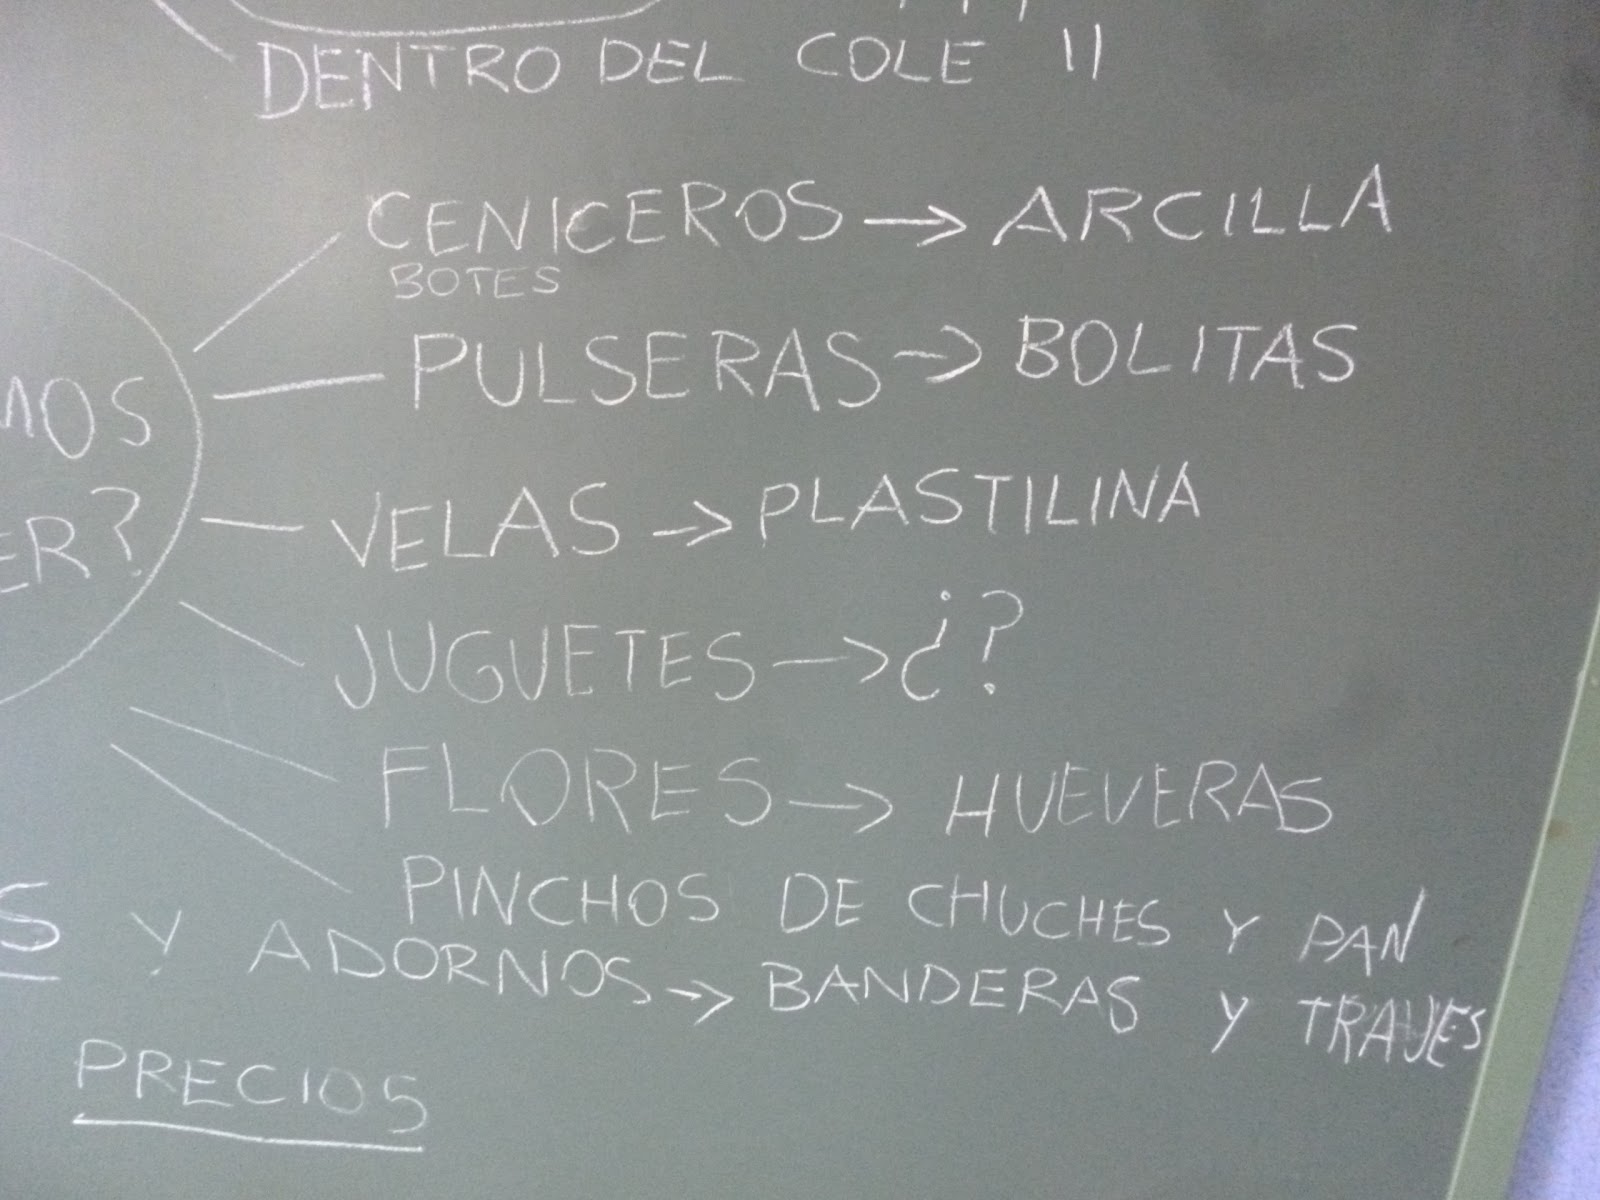 DENTRO DEL COLE 11
CENICEROS → ARCILLA
BOTES
PULSERAS → BOLITAS
MOS
VELAS → PLASTILINA
ER?
JUGUETES → ¿?
FLORES → HUEVERAS
PINCHOS DE CHUCHES Y PAN
S Y ADORNOS → BANDERAS Y TRAJES
PRECIOS